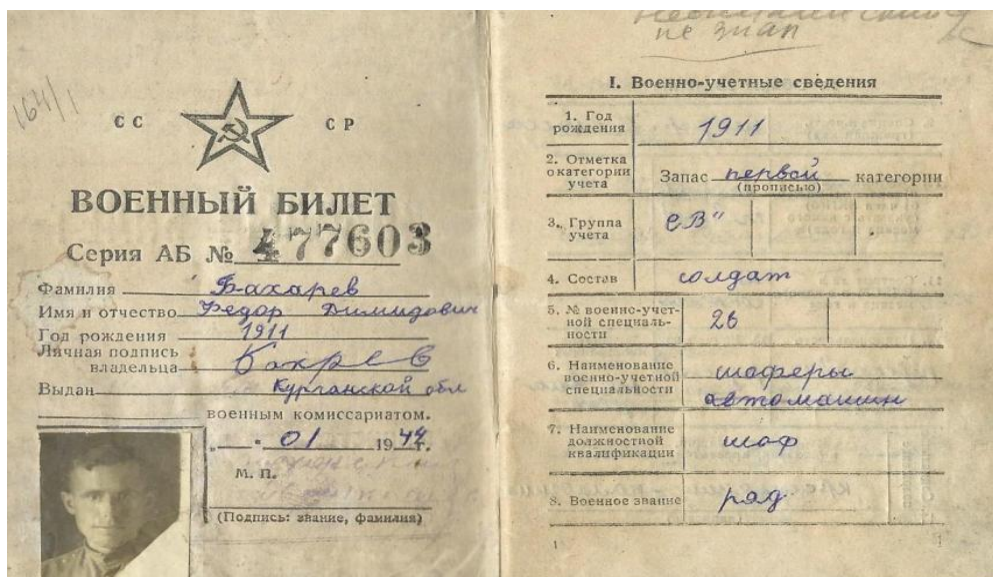 164/1
СС СР
ВОЕННЫЙ БИЛЕТ
Серия АБ № 477603
Фамилия Бахарев
Имя и отчество Федор Димидович
Год рождения 1911
Личная подпись
владельца
Выдан Курганской обл
военным комиссариатом.
„ " 01 1944 г.
М. П.
(Подпись: звание, фамилия)
не знал
I. Военно-учетные сведения
1. Год
рождения 1911
2. Отметка
о категории
учета
Запас первой категории
(прописью)
3. Группа
учета
СВ"
4. Состав солдат
5. № военно-учет-
ной специаль-
ности
26
6. Наименование
военно-учетной
специальности
шоферы
автомашин
7. Наименование
должностной
квалификации
шоф
8. Военное звание ряд
1